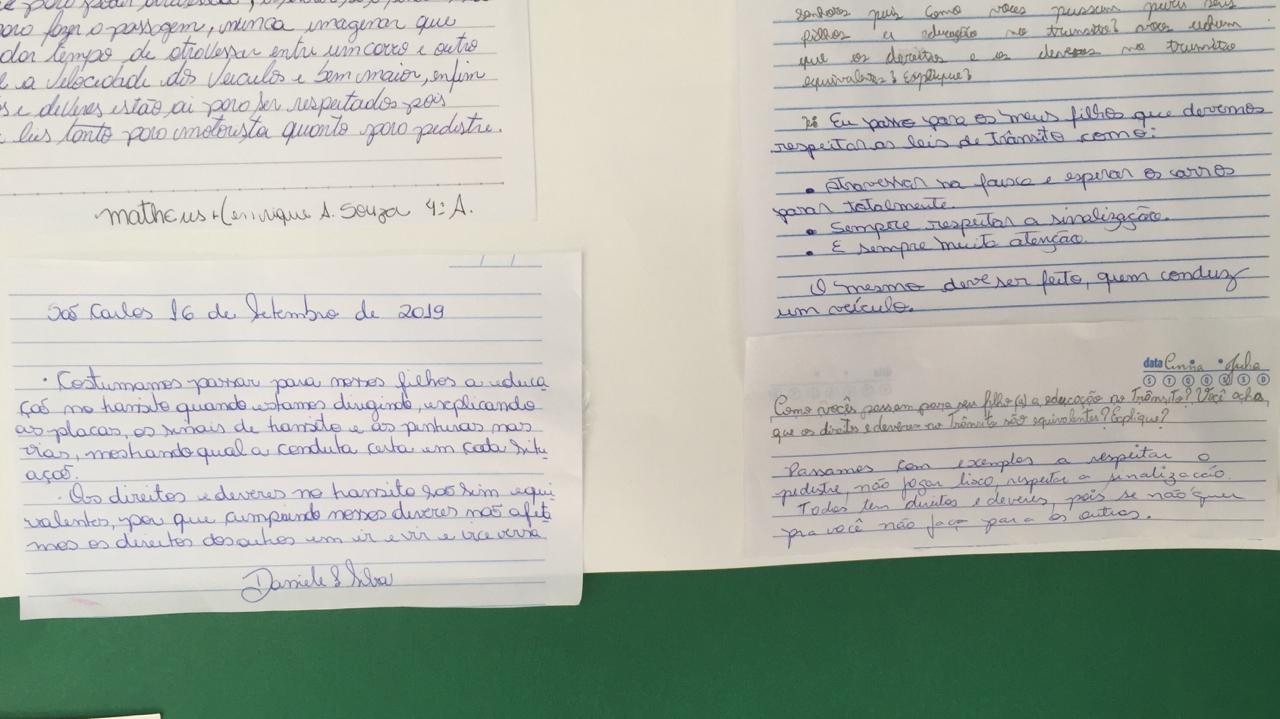 para fazer o passagem, nunca imaginar que
dar tempo de atravessar entre um carro e outro
e a velocidade dos veículos e bem maior, enfim
s e deveres estão ai para ser respeitados pois
leis tanto para motorista quanto para pedestre.
Matheus Henrique A. Souza 4º A.
São Carlos 16 de Setembro de 2019
· Costumamos passar para nossos filhos a educa
ção no transito quando estamos dirigindo, explicando
as placas, os sinais de transito e as pinturas nas
vias, mostrando qual a conduta certa em cada situ
ação.
· Os direitos e deveres no transito são sim equi
valentes, por que cumprindo nossos deveres não afeta
mos os direitos dos outros em ir e vir e vice versa
Daniele S Silva
senhores pais como voces passam para seus
filhos a educação no transito? voces acham
que os direitos e os deveres no transito
equivalentes? Explique?
R: Eu passo para os meus filhos que devemos
respeitar as leis de Trânsito como:
• Atravessar na faixa e esperar os carros
parar totalmente.
• Sempre respeitar a sinalização.
• E sempre muita atenção.
O mesmo deve ser feito, quem conduz
um veículo.
data
S T Q Q S S D
Como vocês passam para seu filho(a) a educação no Trânsito? Você acha,
que os direitos e deveres no Trânsito são equivalentes? Explique?
Passamos com exemplos a respeitar o
pedestre, não jogar lixo, respeitar a sinalização.
Todos tem direitos e deveres, pois se não quer
pra você não faça para os outros.